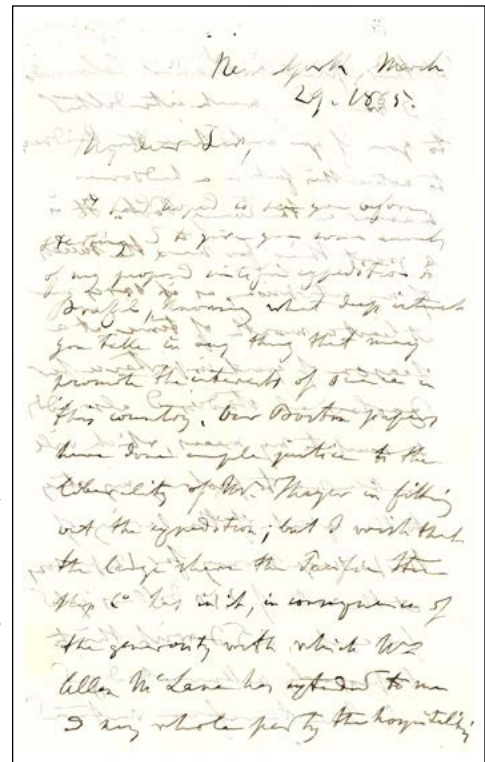 New York, March
29. 1865.
My dear Sir,
I had hoped to see you before
starting & to give you some account
of my proposed scientific expedition to
Brazil, knowing what deep interest
you take in any thing that may
promote the interests of science in
this country. Our Boston papers
have done ample justice to the
liberality of Mr. Thayer in fitting
out the expedition; but I wish that
the large share the Pacific Steam
Ship Co has in it, in consequence of
the generosity with which Mr
Allen McLane has extended to me
& my whole party the hospitality